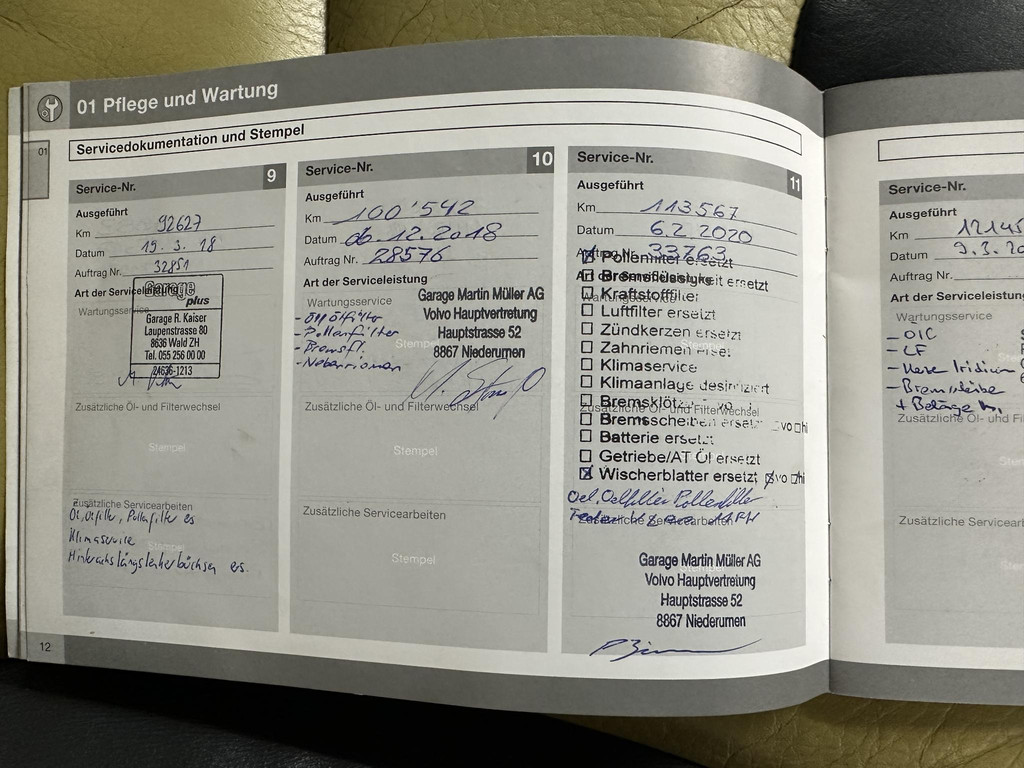 01 Pflege und Wartung
01
Servicedokumentation und Stempel
Service-Nr. 9
Ausgeführt
Km 92627
Datum 19. 3. 18
Auftrag Nr. 32851
Art der Serviceleistung
Wartungsservice
Garage
plus
Garage R. Kaiser
Laupenstrasse 80
8636 Wald ZH
Tel. 055 256 00 00
24636-1213
Zusätzliche Öl- und Filterwechsel
Stempel
Zusätzliche Servicearbeiten
Öl, Ölfilter, Pollenfilter es
Klimaservice
Stempel
Hinterachslängslenkerbüchsen es.
12
Service-Nr. 10
Ausgeführt
Km 100'542
Datum 06.12.2018
Auftrag Nr. 28576
Art der Serviceleistung
Wartungsservice
- Öl/Ölfilter
- Pollenfilter
- Bremsfl.
- Nebenriemen
Stempel
Garage Martin Müller AG
Volvo Hauptvertretung
Hauptstrasse 52
8867 Niederurnen
Zusätzliche Öl- und Filterwechsel
Stempel
Zusätzliche Servicearbeiten
Stempel
Service-Nr. 11
Ausgeführt
Km 113567
Datum 6.2 2020
Auftrag Nr. 33763
Pollenfilter ersetzt
Art der Serviceleistung
Bremsflüssigkeit ersetzt
Kraftstoffilter
Wartungsservice
Luftfilter ersetzt
Zündkerzen ersetzt
Zahnriemen ersetzt
Stempel
Klimaservice
Klimaanlage desinfiziert
Bremsklötze vo
Zusätzliche Öl- und Filterwechsel
Bremsscheiben ersetzt vo hi
Batterie ersetzt
Getriebe/AT Öl ersetzt
Wischerblatter ersetzt vo hi
Oel, Oelfilter Pollenfilter
Zusätzliche Servicearbeiten
Garage Martin Müller AG
Volvo Hauptvertretung
Hauptstrasse 52
8867 Niederurnen
Service-Nr.
Ausgeführt
Km 12145
Datum 9.3.20
Auftrag Nr.
Art der Serviceleistung
Wartungsservice
- Öl C
- CF
- Kerze Iridium
- Bremsscheibe
+ Beläge h.
Zusätzliche Öl- und Fi
Zusätzliche Servicearb